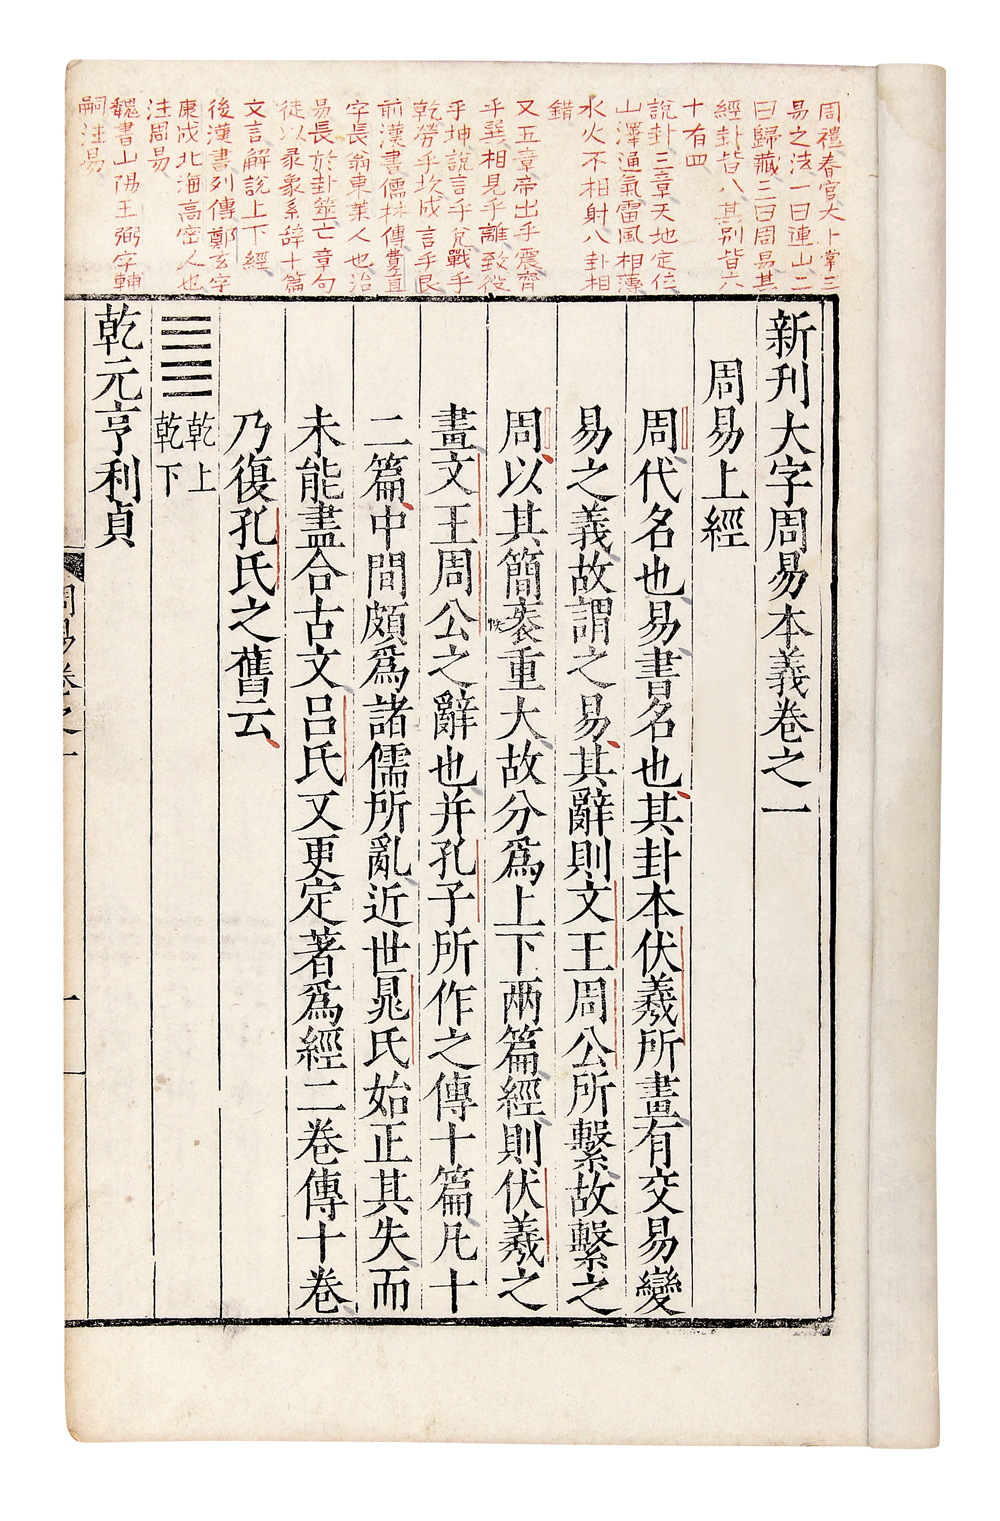 周禮春官大卜掌三
易之法一曰連山二
曰歸藏三曰周易其
經卦皆八其別皆六
十有四
說卦三章天地定位
山澤通氣雷風相薄
水火不相射八卦相
錯
又五章帝出乎震齊
乎巽相見乎離致役
乎坤說言乎兌戰乎
乾勞乎坎成言乎艮
前漢書儒林傳費直
字長翁東萊人也治
易長於卦筮亡章句
徒以彖象系辞十篇
文言解說上下經
後漢書列傳鄭玄字
康成北海高密人也
注周易
魏書山陽王弼字輔
嗣注易
新刋大字周易本義卷之一
周易上經
周代名也易書名也其卦本伏羲所畫有交易變
易之義故謂之易其辭則文王周公所繫故繫之
周以其簡袠重大故分爲上下兩篇經則伏羲之
畫文王周公之辭也并孔子所作之傳十篇凡十
二篇中間頗爲諸儒所亂近世晁氏始正其失而
未能盡合古文吕氏又更定著爲經二卷傳十卷
乃復孔氏之舊云
乾上
乾下
乾元亨利貞
周易卷之一
一